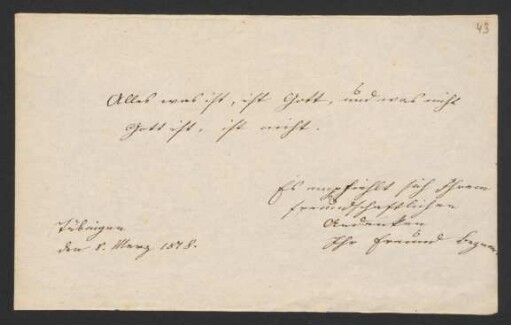 43
Alles was ist, ist Gott, und was nicht
Gott ist, ist nicht.
Es empfiehlt sich Ihrem
freundschaftlichen
Andenken
Ihr Freund
Tübingen
den 8. Merz 1878.